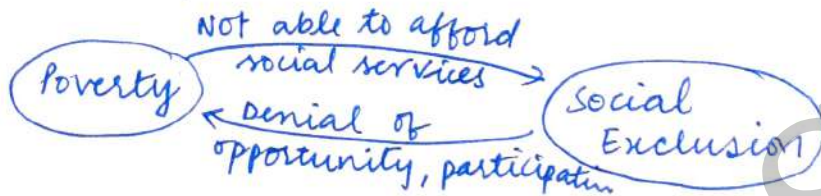 Not able to afford
social services
Poverty
Social
Exclusion
Denial of
opportunity, participatin